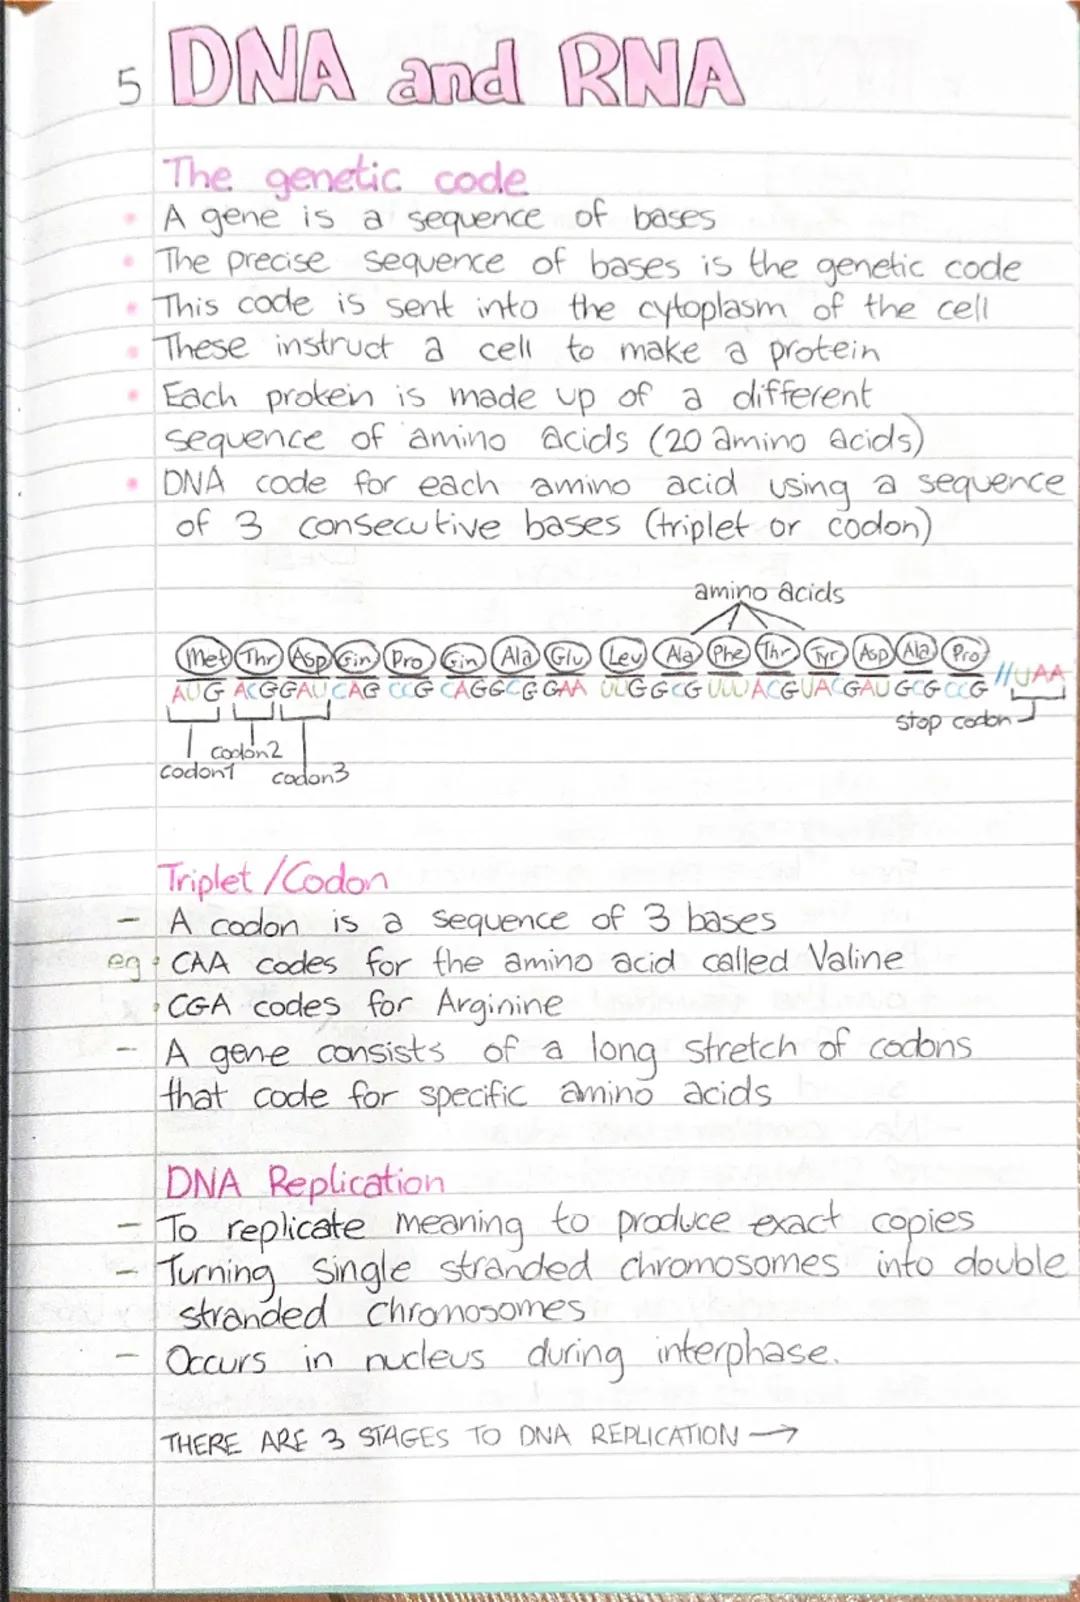 5 DNA and RNA
The genetic code
• A gene is a sequence of bases
• The precise sequence of bases is the genetic code
• This code is sent into the cytoplasm of the cell
• These instruct a cell to make a protein
• Each protein is made up of a different
sequence of amino acids (20 amino acids)
• DNA code for each amino acid using a sequence
of 3 consecutive bases (triplet or codon)
amino acids
Met Thr Asp Gin Pro Gin Ala Glu Leu Ala Phe Thr Tyr Asp Ala Pro
AUG ACG GAU CAG CCG CAG GCG GAA UUG GCG UUU ACG UAC GAU GCG CCG // UAA
stop codon
codon2
codon1 codon3
Triplet / Codon
- A codon is a sequence of 3 bases
eg • CAA codes for the amino acid called Valine
• CGA codes for Arginine
- A gene consists of a long stretch of codons
that code for specific amino acids
DNA Replication
- To replicate meaning to produce exact copies
- Turning single stranded chromosomes into double
stranded chromosomes
- Occurs in nucleus during interphase.
THERE ARE 3 STAGES TO DNA REPLICATION →